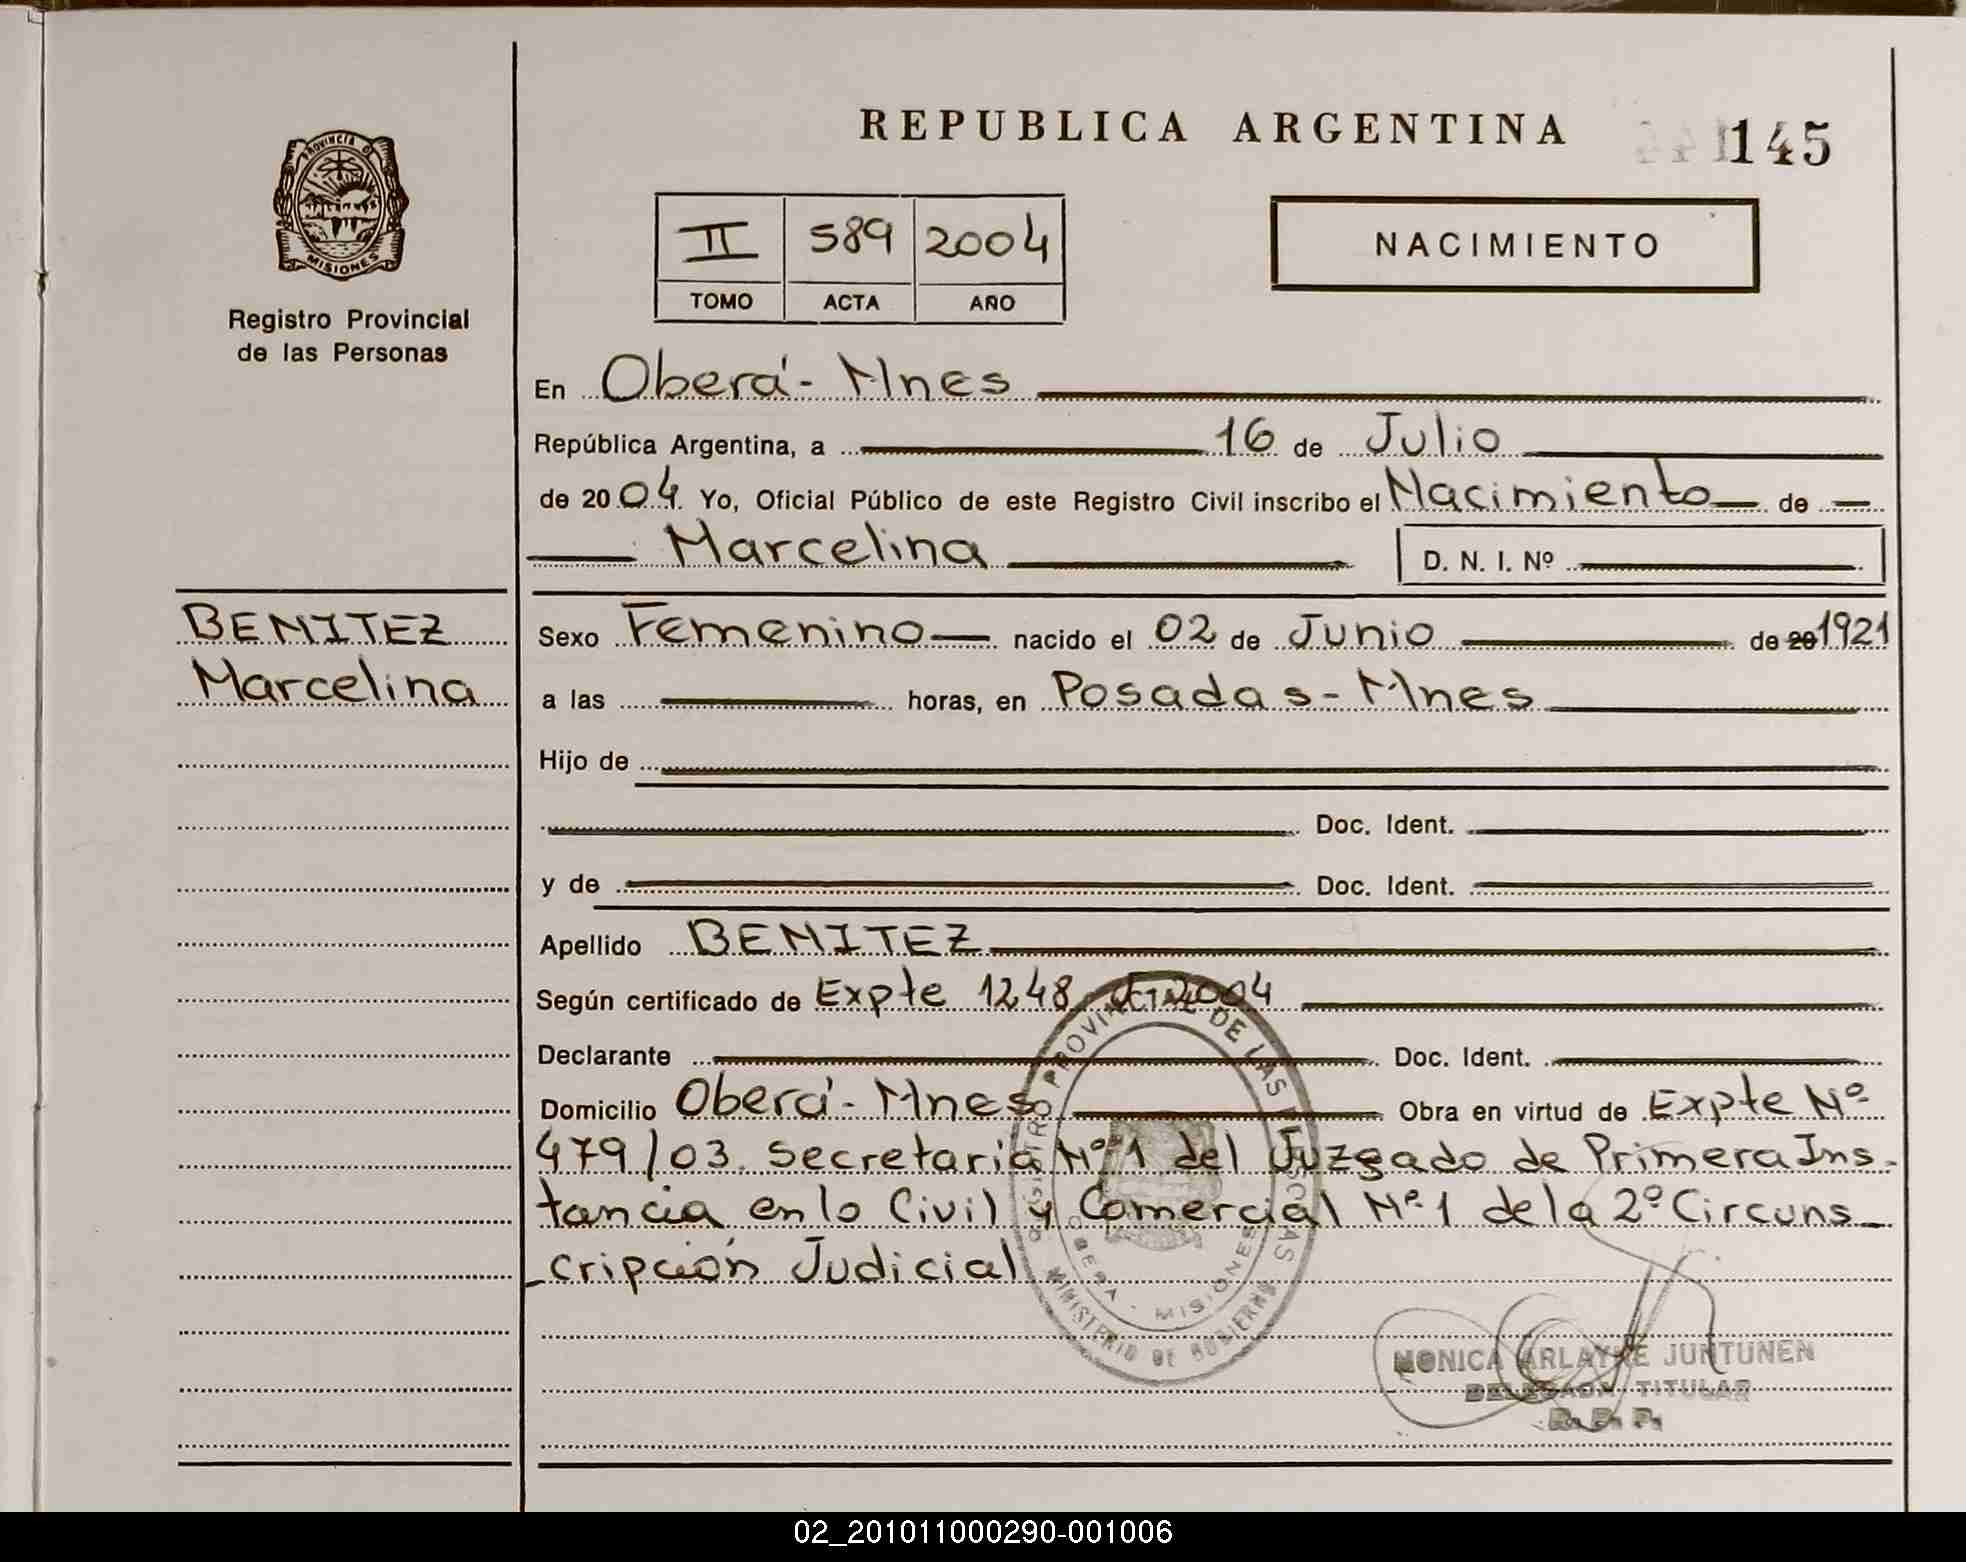 REPUBLICA ARGENTINA
145
PROVINCIA DE
MISIONES
Registro Provincial
de las Personas
II 589 2004
TOMO ACTA AÑO
NACIMIENTO
En Oberá - Mnes
República Argentina, a 16 de Julio
de 2004 Yo, Oficial Público de este Registro Civil inscribo el Nacimiento de
Marcelina D. N. I. Nº
BENITEZ
Marcelina
Sexo Femenino nacido el 02 de Junio de 20 1921
a las horas, en Posadas - Mnes
Hijo de
Doc. Ident.
y de Doc. Ident.
Apellido BENITEZ
Según certificado de Expte 1248 2004
Declarante Doc. Ident.
Domicilio Oberá - Mnes Obra en virtud de Expte Nº
479/03. Secretaria Nº 1 del Juzgado de Primera Ins-
tancia en lo Civil y Comercial Nº 1 de la 2º Circuns_
_cripción Judicial
REGISTRO PROVINCIAL DE LAS PERSONAS
OBERA - MISIONES
MINISTERIO DE GOBIERNO
MONICA ARLAYNE JUNTUNEN
DELEGADA TITULAR
R. P. P.
02_201011000290-001006